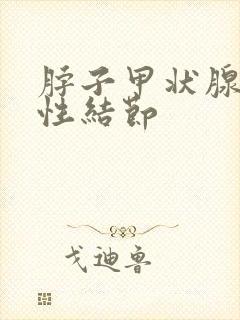 脖子甲状腺
性結節
戈迪魯